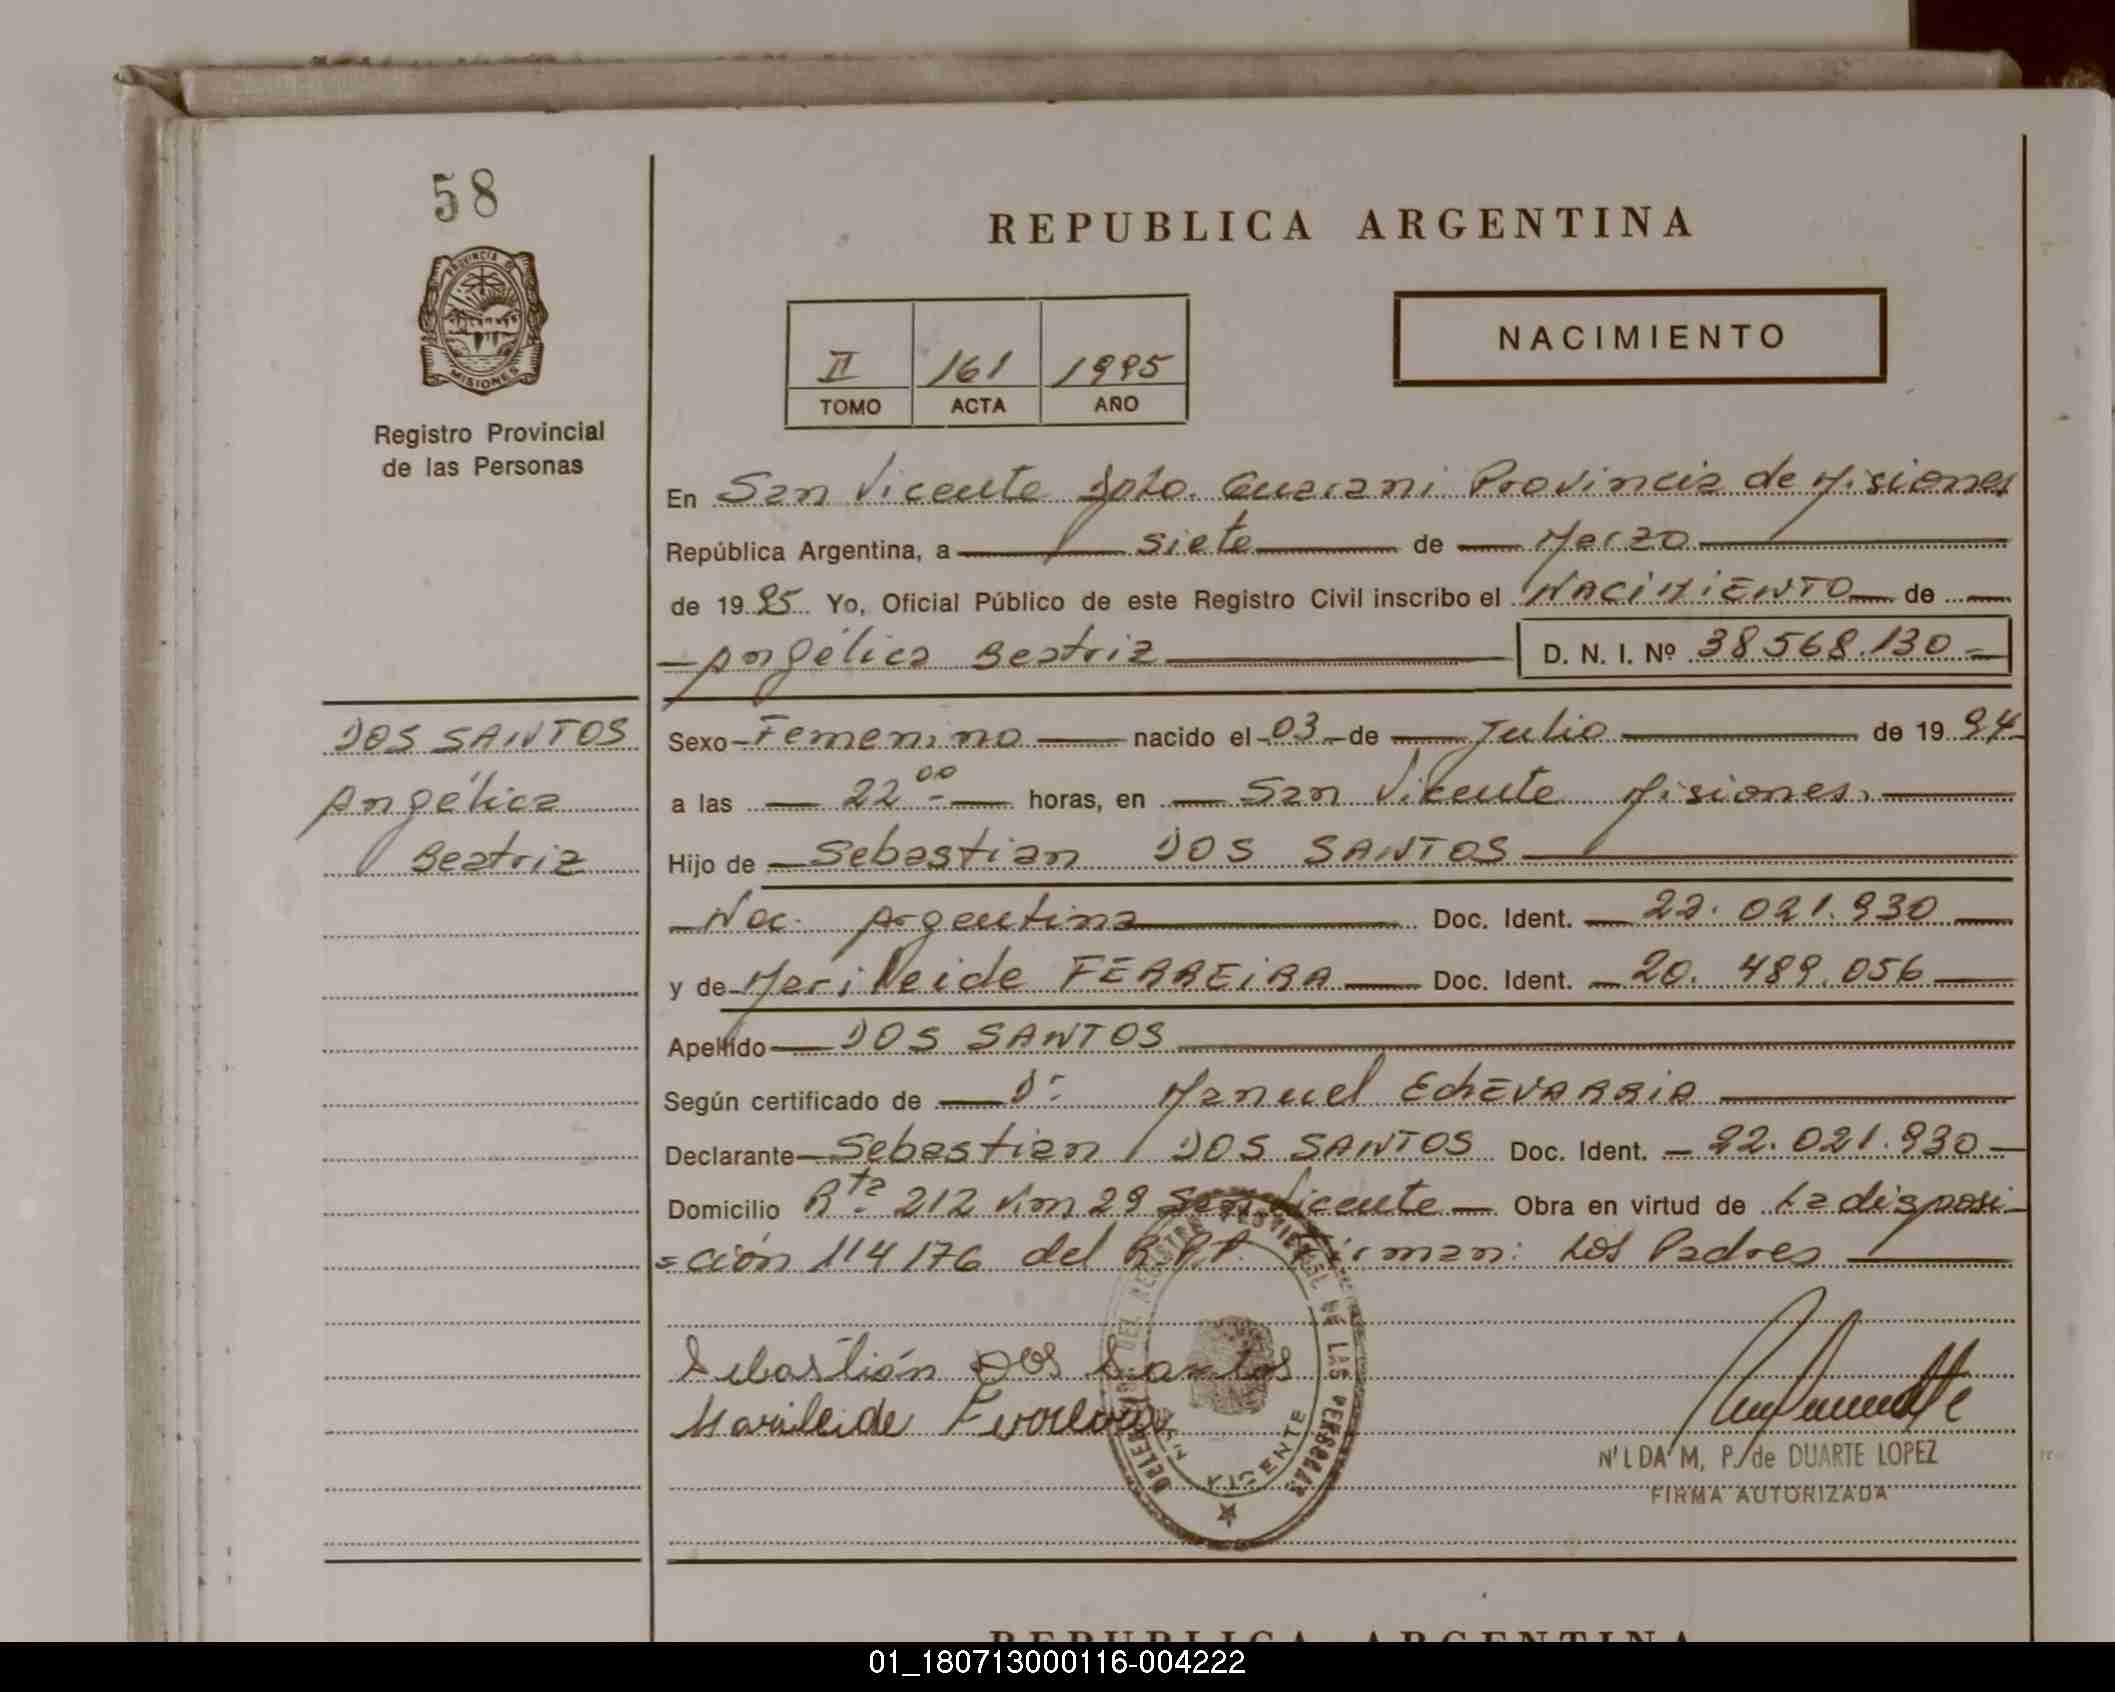 58
REPUBLICA ARGENTINA
PROVINCIA DE
MISIONES
Registro Provincial
de las Personas
II 161 1995
TOMO ACTA AÑO
NACIMIENTO
En San Vicente Dpto. Guarani Provincia de Misiones
República Argentina, a siete de Marzo
de 1995 Yo, Oficial Público de este Registro Civil inscribo el NACIMIENTO de
Angélica Beatriz D. N. I. Nº 38.568.130
DOS SANTOS
Angélica
Beatriz
Sexo Femenino nacido el 03 de Julio de 1994
a las 22 00 horas, en San Vicente Misiones.
Hijo de Sebastian DOS SANTOS
Nac. Argentina Doc. Ident. 22.021.930
y de Marileide FERREIRA Doc. Ident. 20.489.056
Apellido DOS SANTOS
Según certificado de Dr. Manuel EChEVARRIA
Declarante Sebastian DOS SANTOS Doc. Ident. 22.021.930
Domicilio Rta 212 Km 29 San Vicente Obra en virtud de La disposi-
=ción 114/76 del R.P.P. Firman: Los Padres
Sebastián Dos Santos
Marileide Ferreira
DEL REGISTRO PROVINCIAL DE LAS PERSONAS
VICENTE
NILDA M, P. de DUARTE LOPEZ
FIRMA AUTORIZADA
REPUBLICA ARGENTINA
01_180713000116-004222